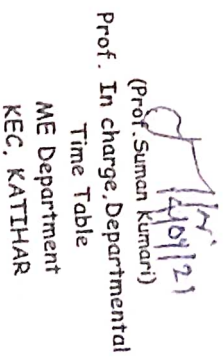 (Prof.Suman Kumari)
Prof. In charge,Departmental
Time Table
ME Department
KEC, KATIHAR